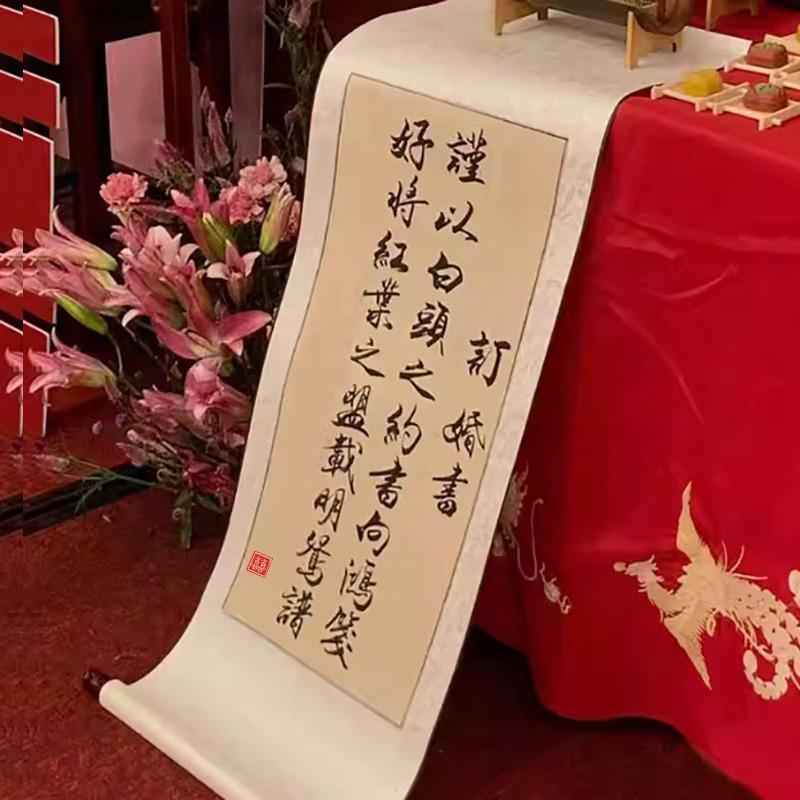 訂婚書
謹以白頭之約書向鴻箋
好將紅葉之盟載明鴛譜
囍